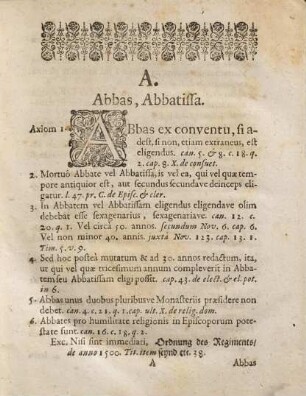 A.
Abbas, Abbatissa.
Axiom 1. ABbas ex conventu, si ad-
est, si non, etiam extraneus, est
eligendus. can. 5. & 8. c. 18. q.
2. cap. 8. X. de consuet.
2. Mortuô Abbate vel Abbatissâ, is vel ea, qui vel quæ tem-
pore antiquior est, aut secundus secundave deinceps eli-
gatur. l. 47. pr. C. de Episc. & cler.
3. In Abbatem vel Abbatissam eligendus eligendave olim
debebat esse sexagenarius, sexagenariave. can. 12. c.
20. q. 1. Vel circa 50. annos. secundum Nov. 6. cap. 6.
Vel non minor 40. annis. juxtà Nov. 123. cap. 13. 1.
Tim. 5. v. 9.
4. Sed hoc posteà mutatum & ad 30. annos redactum, ita,
ut qui vel quæ tricesimum annum compleverit in Abba-
tem seu Abbatissam eligi possit. cap. 43. de elect. & el. pot.
in 6.
5. Abbas unus duobus pluribusve Monasteriis præsidere non
debet. can. 4. c. 21. q. 1. cap. ult. X. de relig. dom.
6. Abbates pro humilitate religionis in Episcoporum pote-
state sunt. can. 16. c. 18. q. 2.
Exc. Nisi sint immediati, Ordnung des Regiments/
de anno 1500. Tit. item seynd etc. 38.
A Abbas